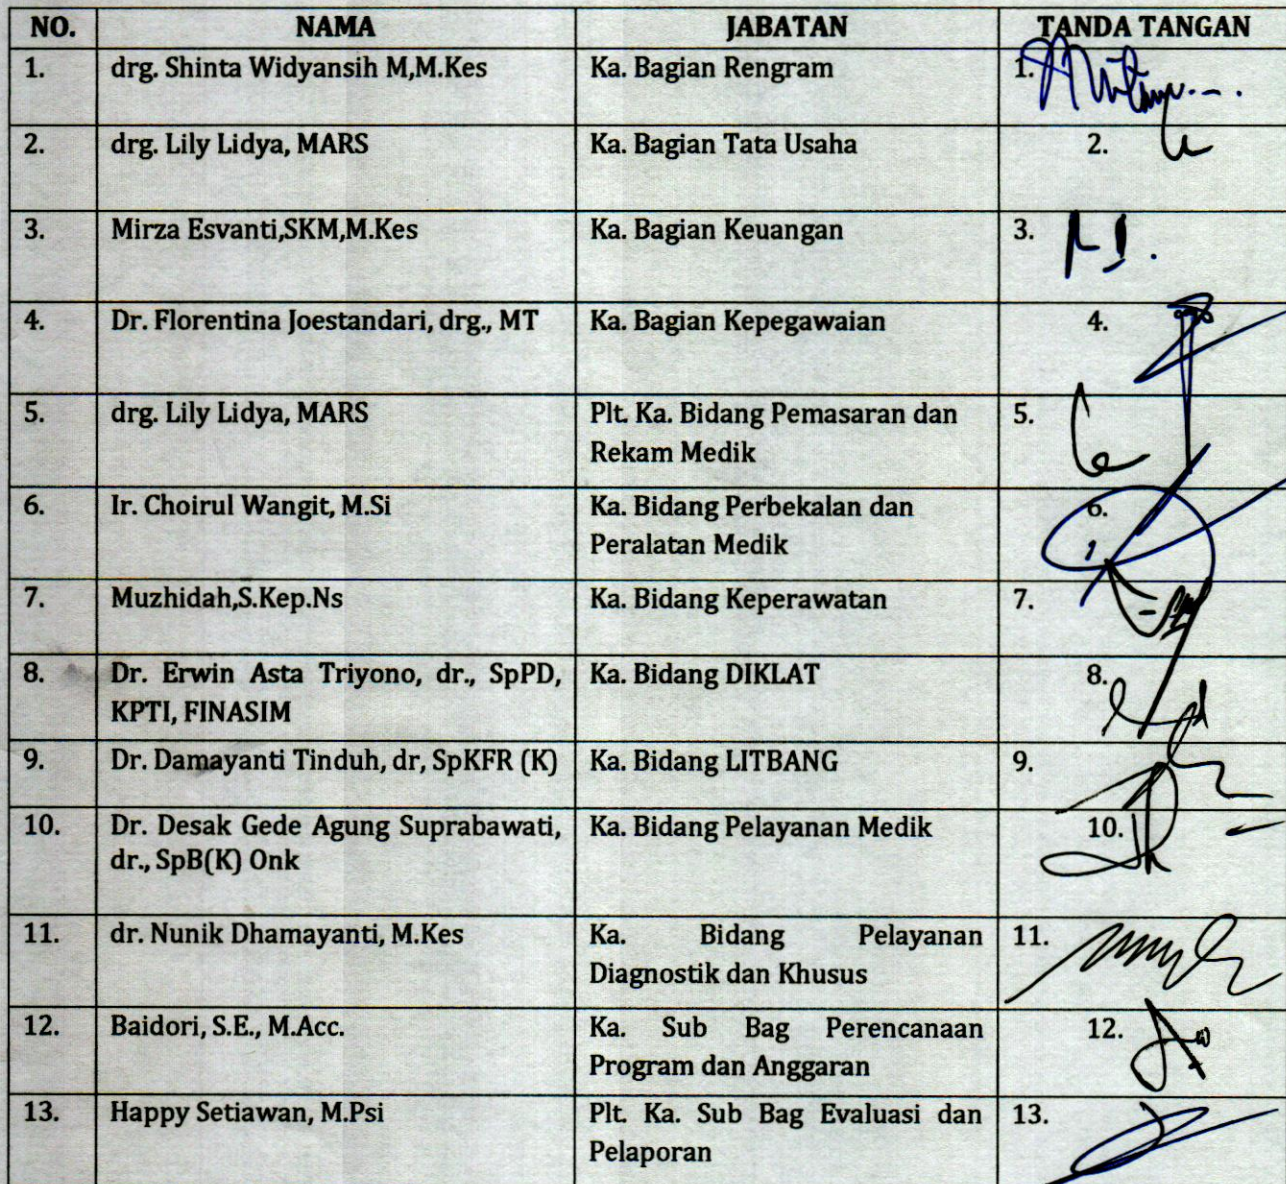 NO. NAMA JABATAN TANDA TANGAN
1. drg. Shinta Widyansih M,M.Kes Ka. Bagian Rengram 1.
2. drg. Lily Lidya, MARS Ka. Bagian Tata Usaha 2.
3. Mirza Esvanti,SKM,M.Kes Ka. Bagian Keuangan 3.
4. Dr. Florentina Joestandari, drg., MT Ka. Bagian Kepegawaian 4.
5. drg. Lily Lidya, MARS Plt. Ka. Bidang Pemasaran dan 5.
Rekam Medik
6. Ir. Choirul Wangit, M.Si Ka. Bidang Perbekalan dan 6.
Peralatan Medik
7. Muzhidah,S.Kep.Ns Ka. Bidang Keperawatan 7.
8. Dr. Erwin Asta Triyono, dr., SpPD, Ka. Bidang DIKLAT 8.
KPTI, FINASIM
9. Dr. Damayanti Tinduh, dr, SpKFR (K) Ka. Bidang LITBANG 9.
10. Dr. Desak Gede Agung Suprabawati, Ka. Bidang Pelayanan Medik 10.
dr., SpB(K) Onk
11. dr. Nunik Dhamayanti, M.Kes Ka. Bidang Pelayanan 11.
Diagnostik dan Khusus
12. Baidori, S.E., M.Acc. Ka. Sub Bag Perencanaan 12.
Program dan Anggaran
13. Happy Setiawan, M.Psi Plt. Ka. Sub Bag Evaluasi dan 13.
Pelaporan